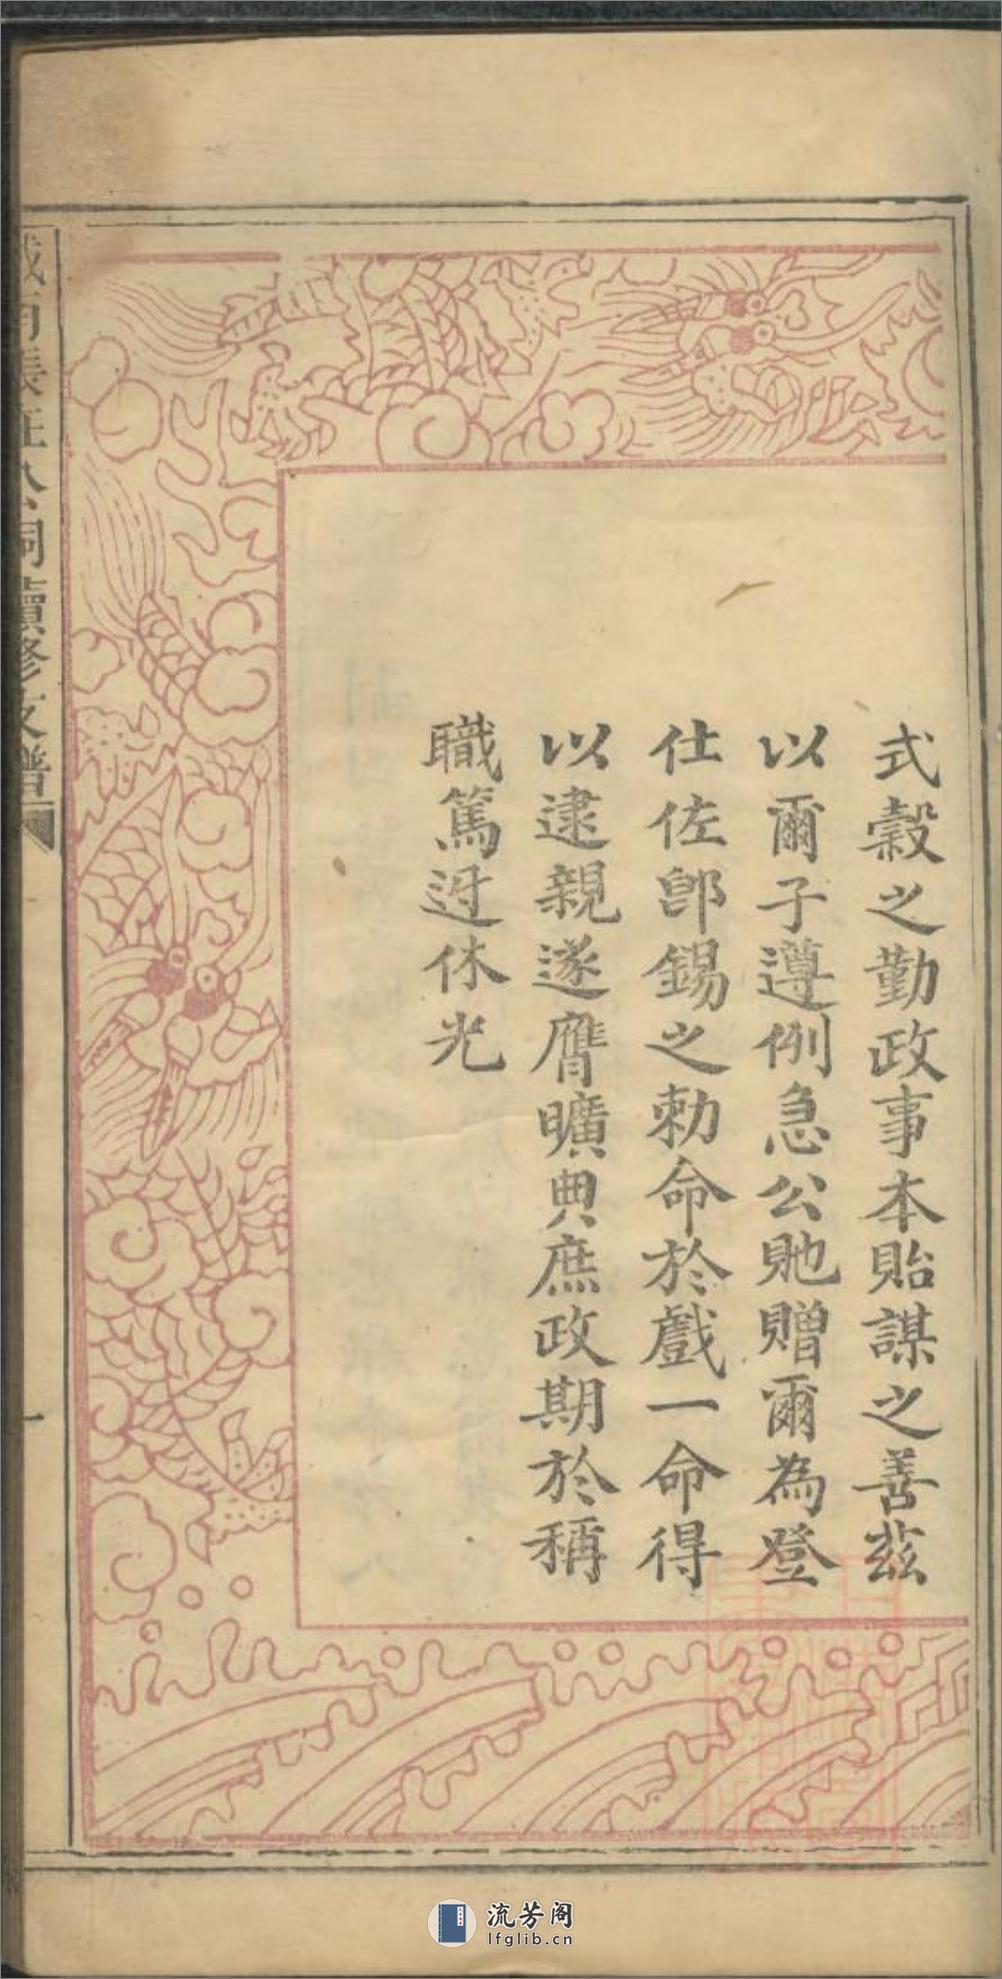 式穀之勤政事本貽謀之善茲
以爾子遵例急公貤贈爾為登
仕佐郎錫之勅命於戲一命得
以逮親遂膺曠典庶政期於稱
職篤迓休光
公祠續修支譜
一
流芳阁
lfglib.cn